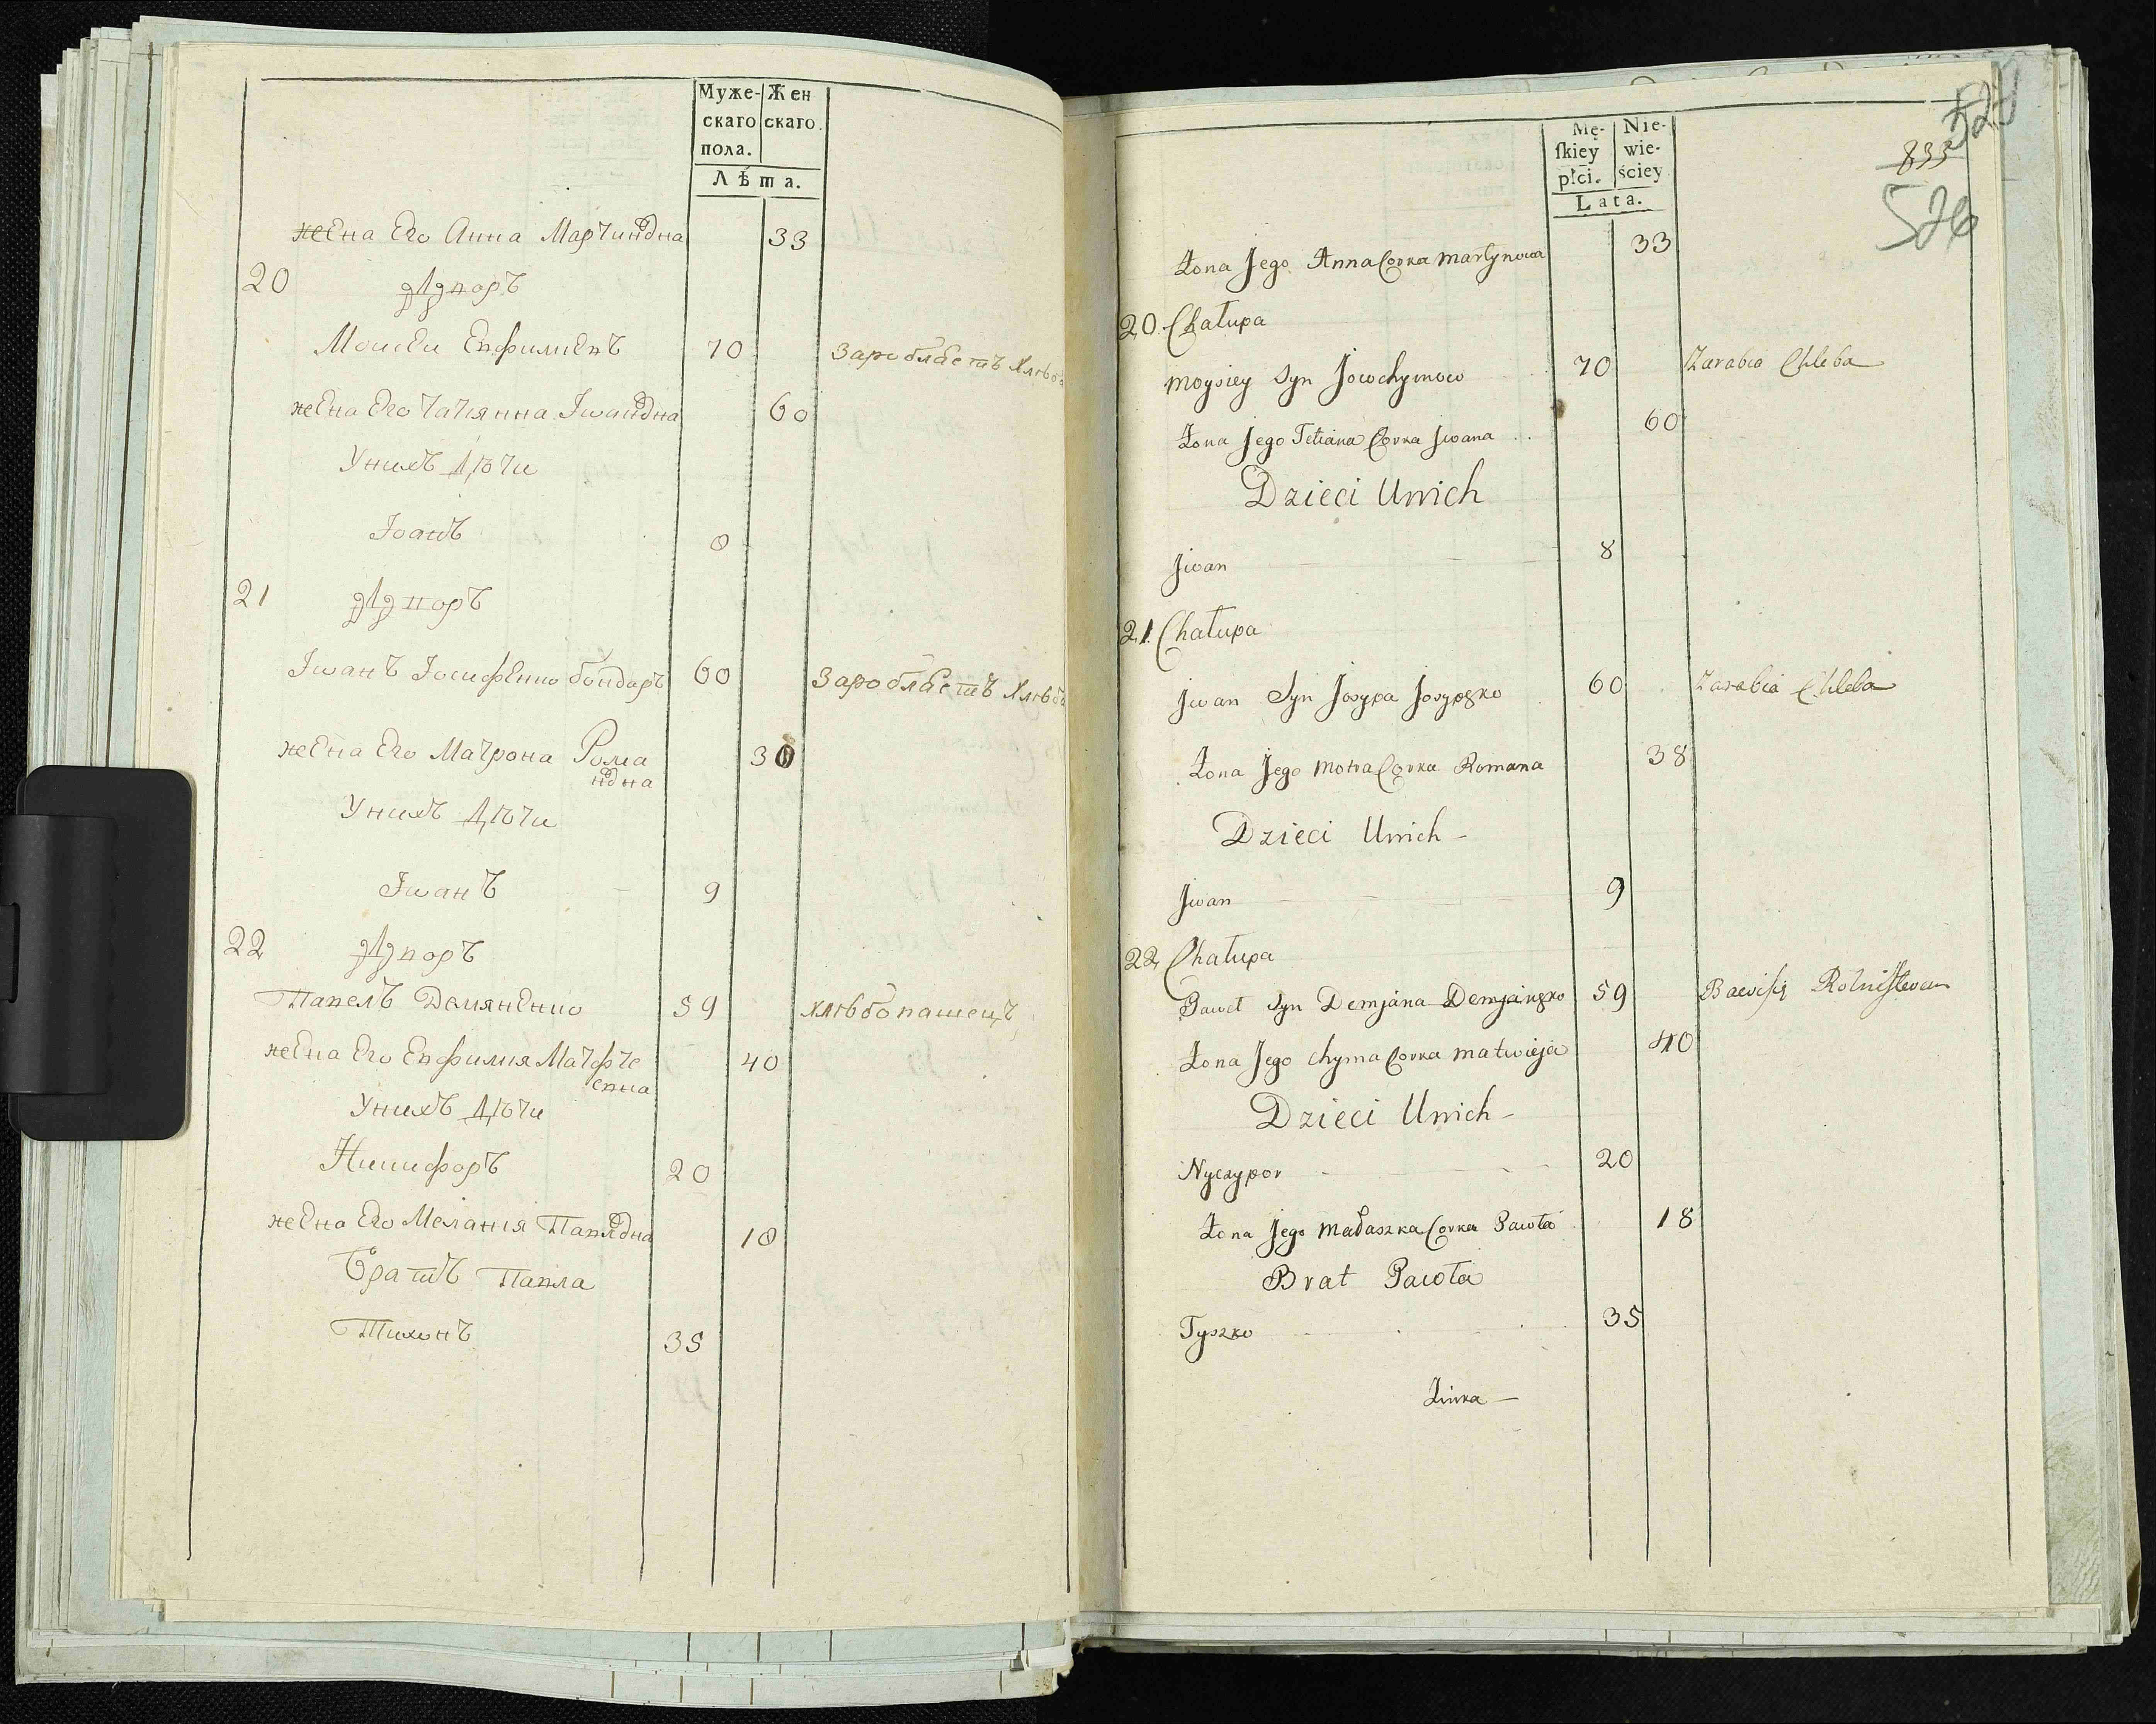 Муже- Жен
скаго скаго.
пола.
Лѣта.
жена Его Анна Мартиновна 33
20 Двворъ
Моисеи Евфимиевъ 70 Заробляетъ хлѣба
жена Его Татиянна Ивановна 60
У нихъ Дѣти
Иоанъ 8
21 Двворъ
Иванъ Иосифенко бондарь 60 Заробляетъ хлѣба
жена Его Матрона Рома
новна 38
У нихъ Дѣти
Иванъ 9
22 Двворъ
Павелъ Демяненко 59 хлѣбопашецъ
жена Его Евфимия Матфе
евна 40
У нихъ Дѣти
Никифоръ 20
жена Его Мелания Павловна 18
Братъ Павла
Тихонъ 35
Mę- Nie-
ſkiey wie-
płci. ściey
Lata.
833
526
Żona Jego Anna Corka Martynowa 33
20. Chałupa
Moysiey Syn Jowchymow 70 Zarabia Chleba
Żona Jego Tetiana Corka Jwana 60
Dzieci Unich
Jwan 8
21. Chałupa
Jwan Syn Josypa Josypęko 60 Zarabia Chleba
Żona Jego Motra Corka Romana 38
Dzieci Unich
Jwan 9
22. Chałupa
Paweł Syn Demjana Demjanęko 59 Bawiſię Rolniſtwem
Żona Jego Chyma Corka Matwieja 40
Dzieci Unich
Nyczypor 20
Żona Jego Małaszka Corka Pawła 18
Brat Pawła
Tyszko 35